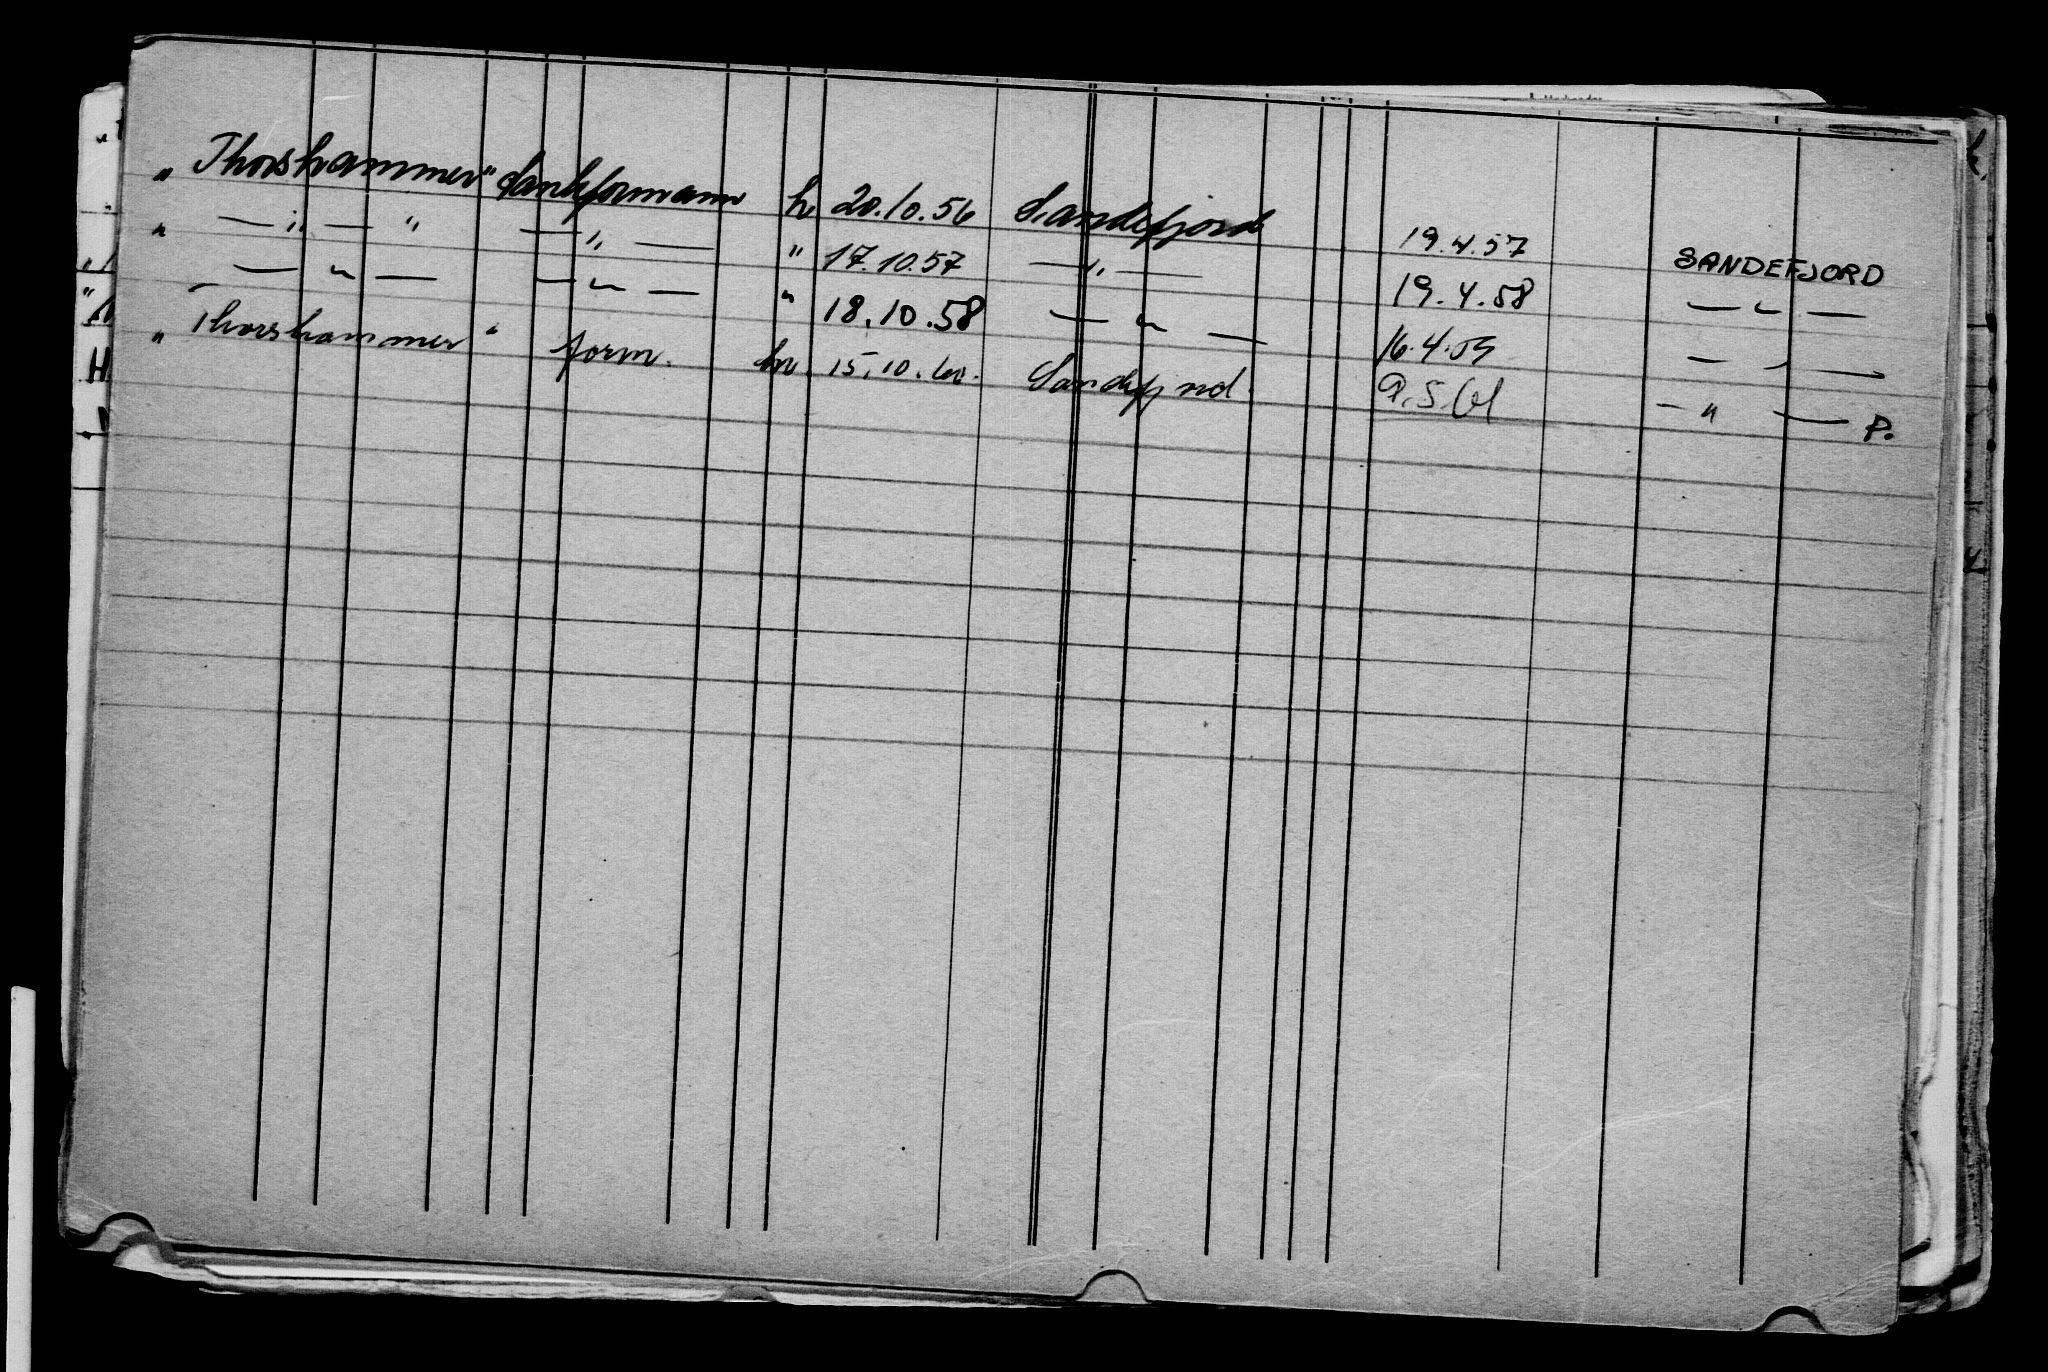 „ Thorshammer" Tankformann h. 20.10.56 Sandefjord 19.4.57 SANDEFJORD
" — " — " — " — " 17.10.57 — " — 19.4.58 — " —
— " — — " — " 18.10.58 — " — 16.4.59 — " —
„ Thorshammer " form. hr. 15.10.60. Sandefjord. 9.5.61 — " — P.